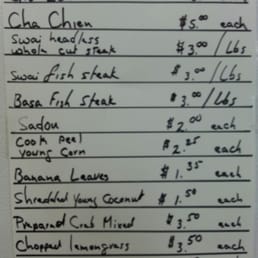 Cha Chien $5.00 each
Swai headless
whole cut steak $3.00/Lbs
Swai fish steak $3.00/Lbs
Basa Fish steak $3.00/Lbs
Sadou $2.00 each
Cook peel
young corn $2.25 each
Banana Leaves $1.35 each
Shredded Young Coconut $1.50 each
Preparred Crab Mixed $3.50 each
Chopped lemongrass $3.50 each